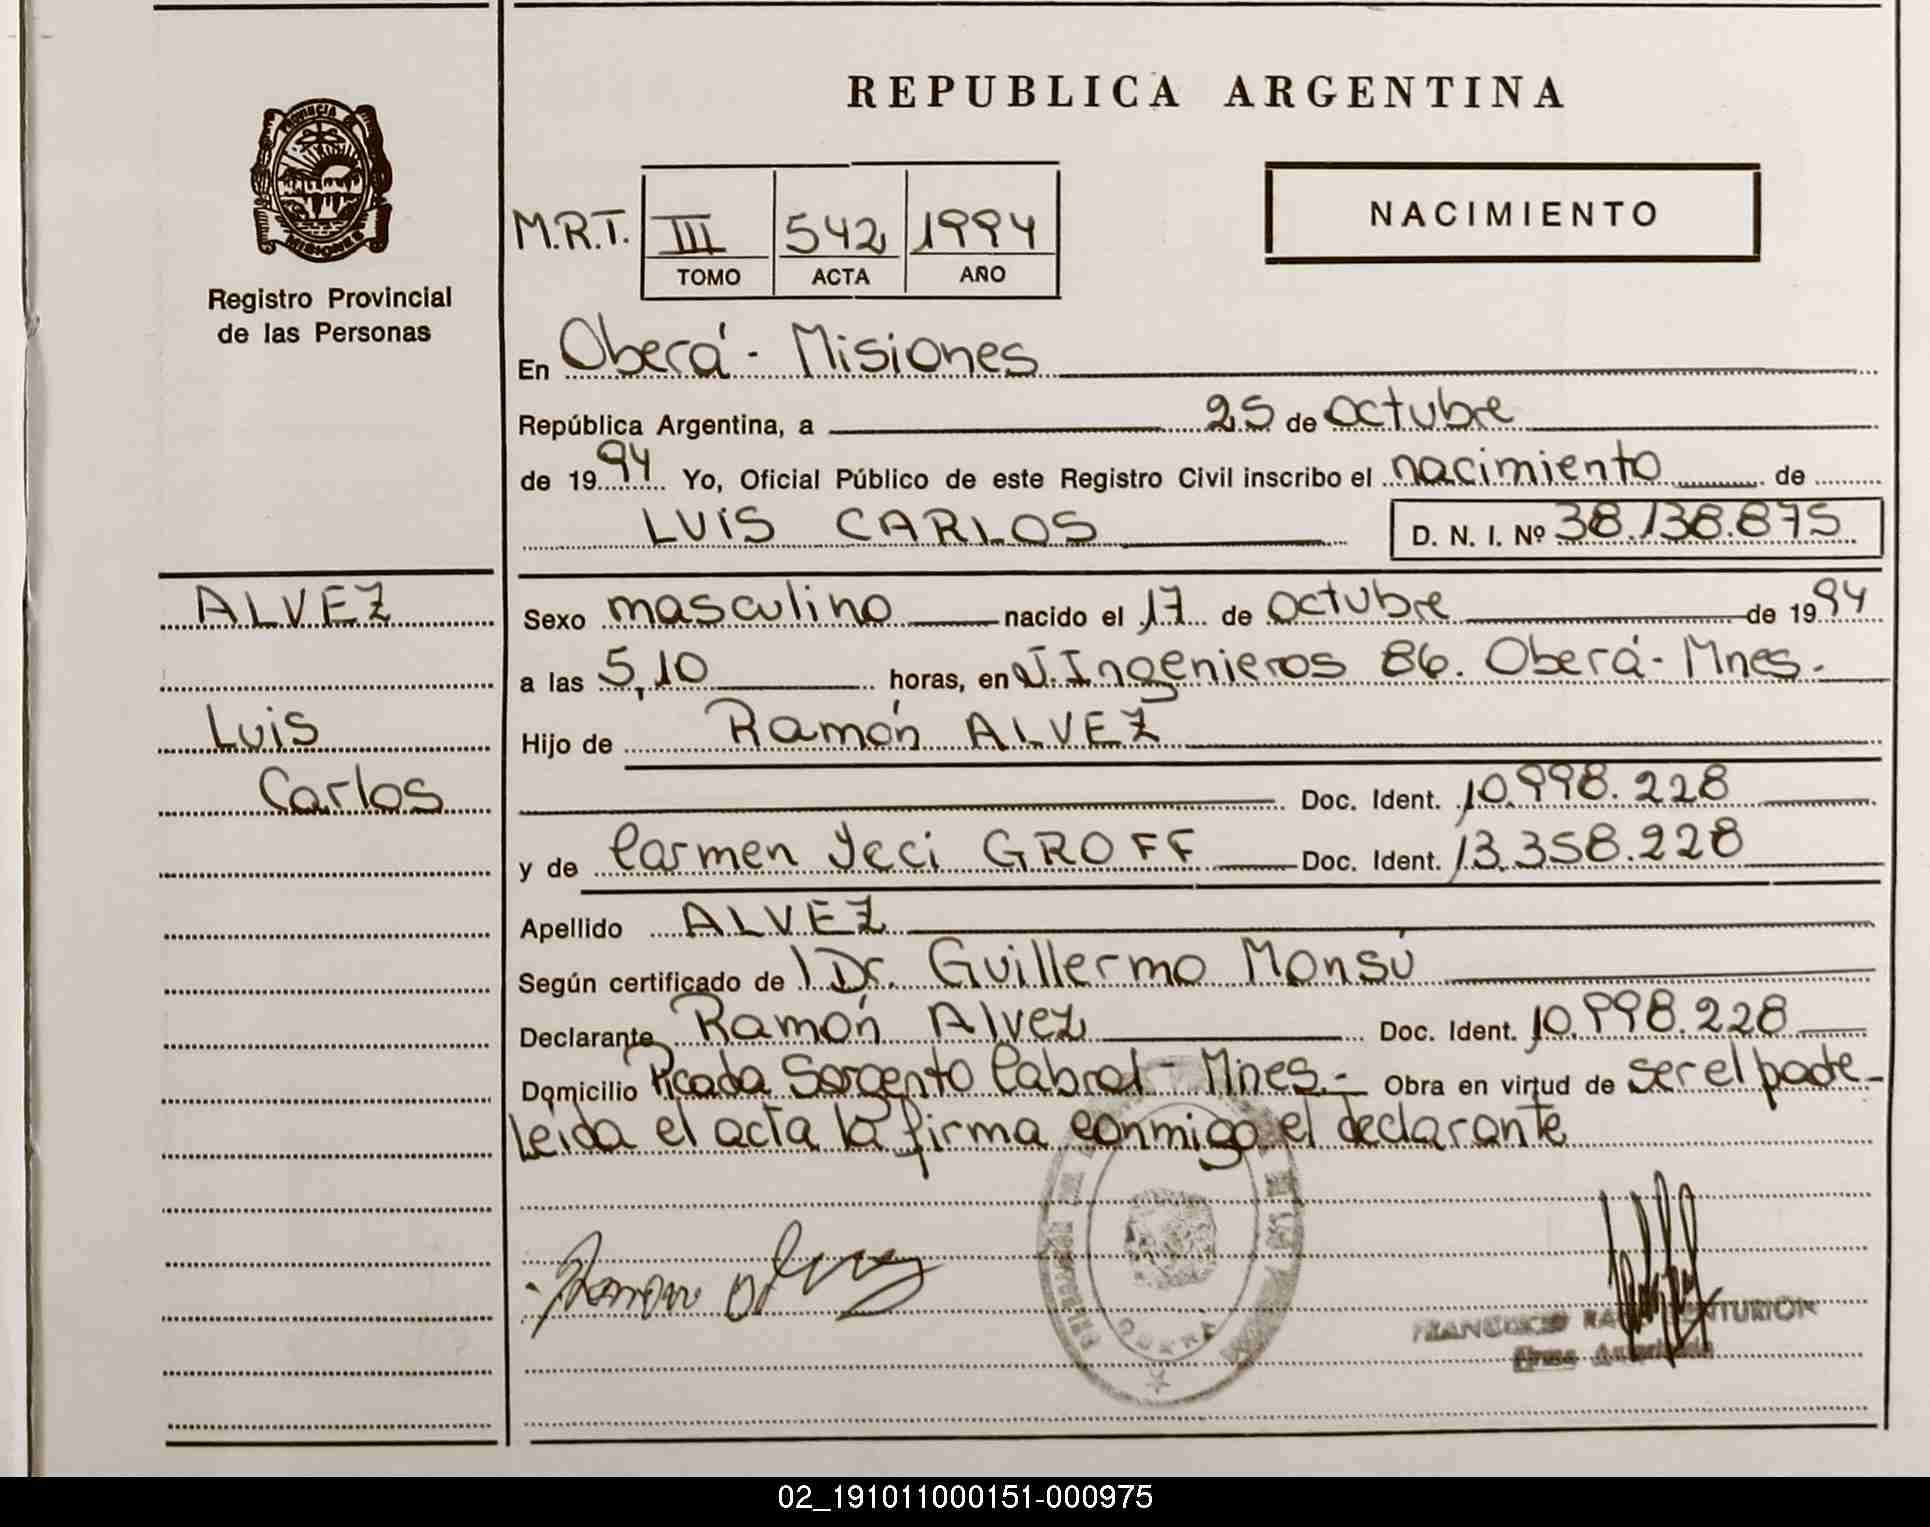 REPUBLICA ARGENTINA
PROVINCIA DE
MISIONES
Registro Provincial
de las Personas
M.R.T. III 542 1994
TOMO ACTA AÑO
NACIMIENTO
En Oberá - Misiones
República Argentina, a 25 de Octubre
de 1994 Yo, Oficial Público de este Registro Civil inscribo el nacimiento de
LUIS CARLOS D. N. I. Nº 38.138.875
ALVEZ
Luis
Carlos
Sexo masculino nacido el 17 de Octubre de 1994
a las 5,10 horas, en J. Ingenieros 86. Oberá - Mnes.
Hijo de Ramón ALVEZ
Doc. Ident. 10.998.228
y de Carmen Ieci GROFF Doc. Ident. 13.358.228
Apellido ALVEZ
Según certificado de Dr. Guillermo Monsú
Declarante Ramón Alvez Doc. Ident. 10.998.228
Domicilio Picada Sargento Cabral - Mnes.- Obra en virtud de ser el padre
Leida el acta la firma conmigo el declarante
Ramon Alvez
OBERA
CENTURION
Firma Autorizada
02_191011000151-000975